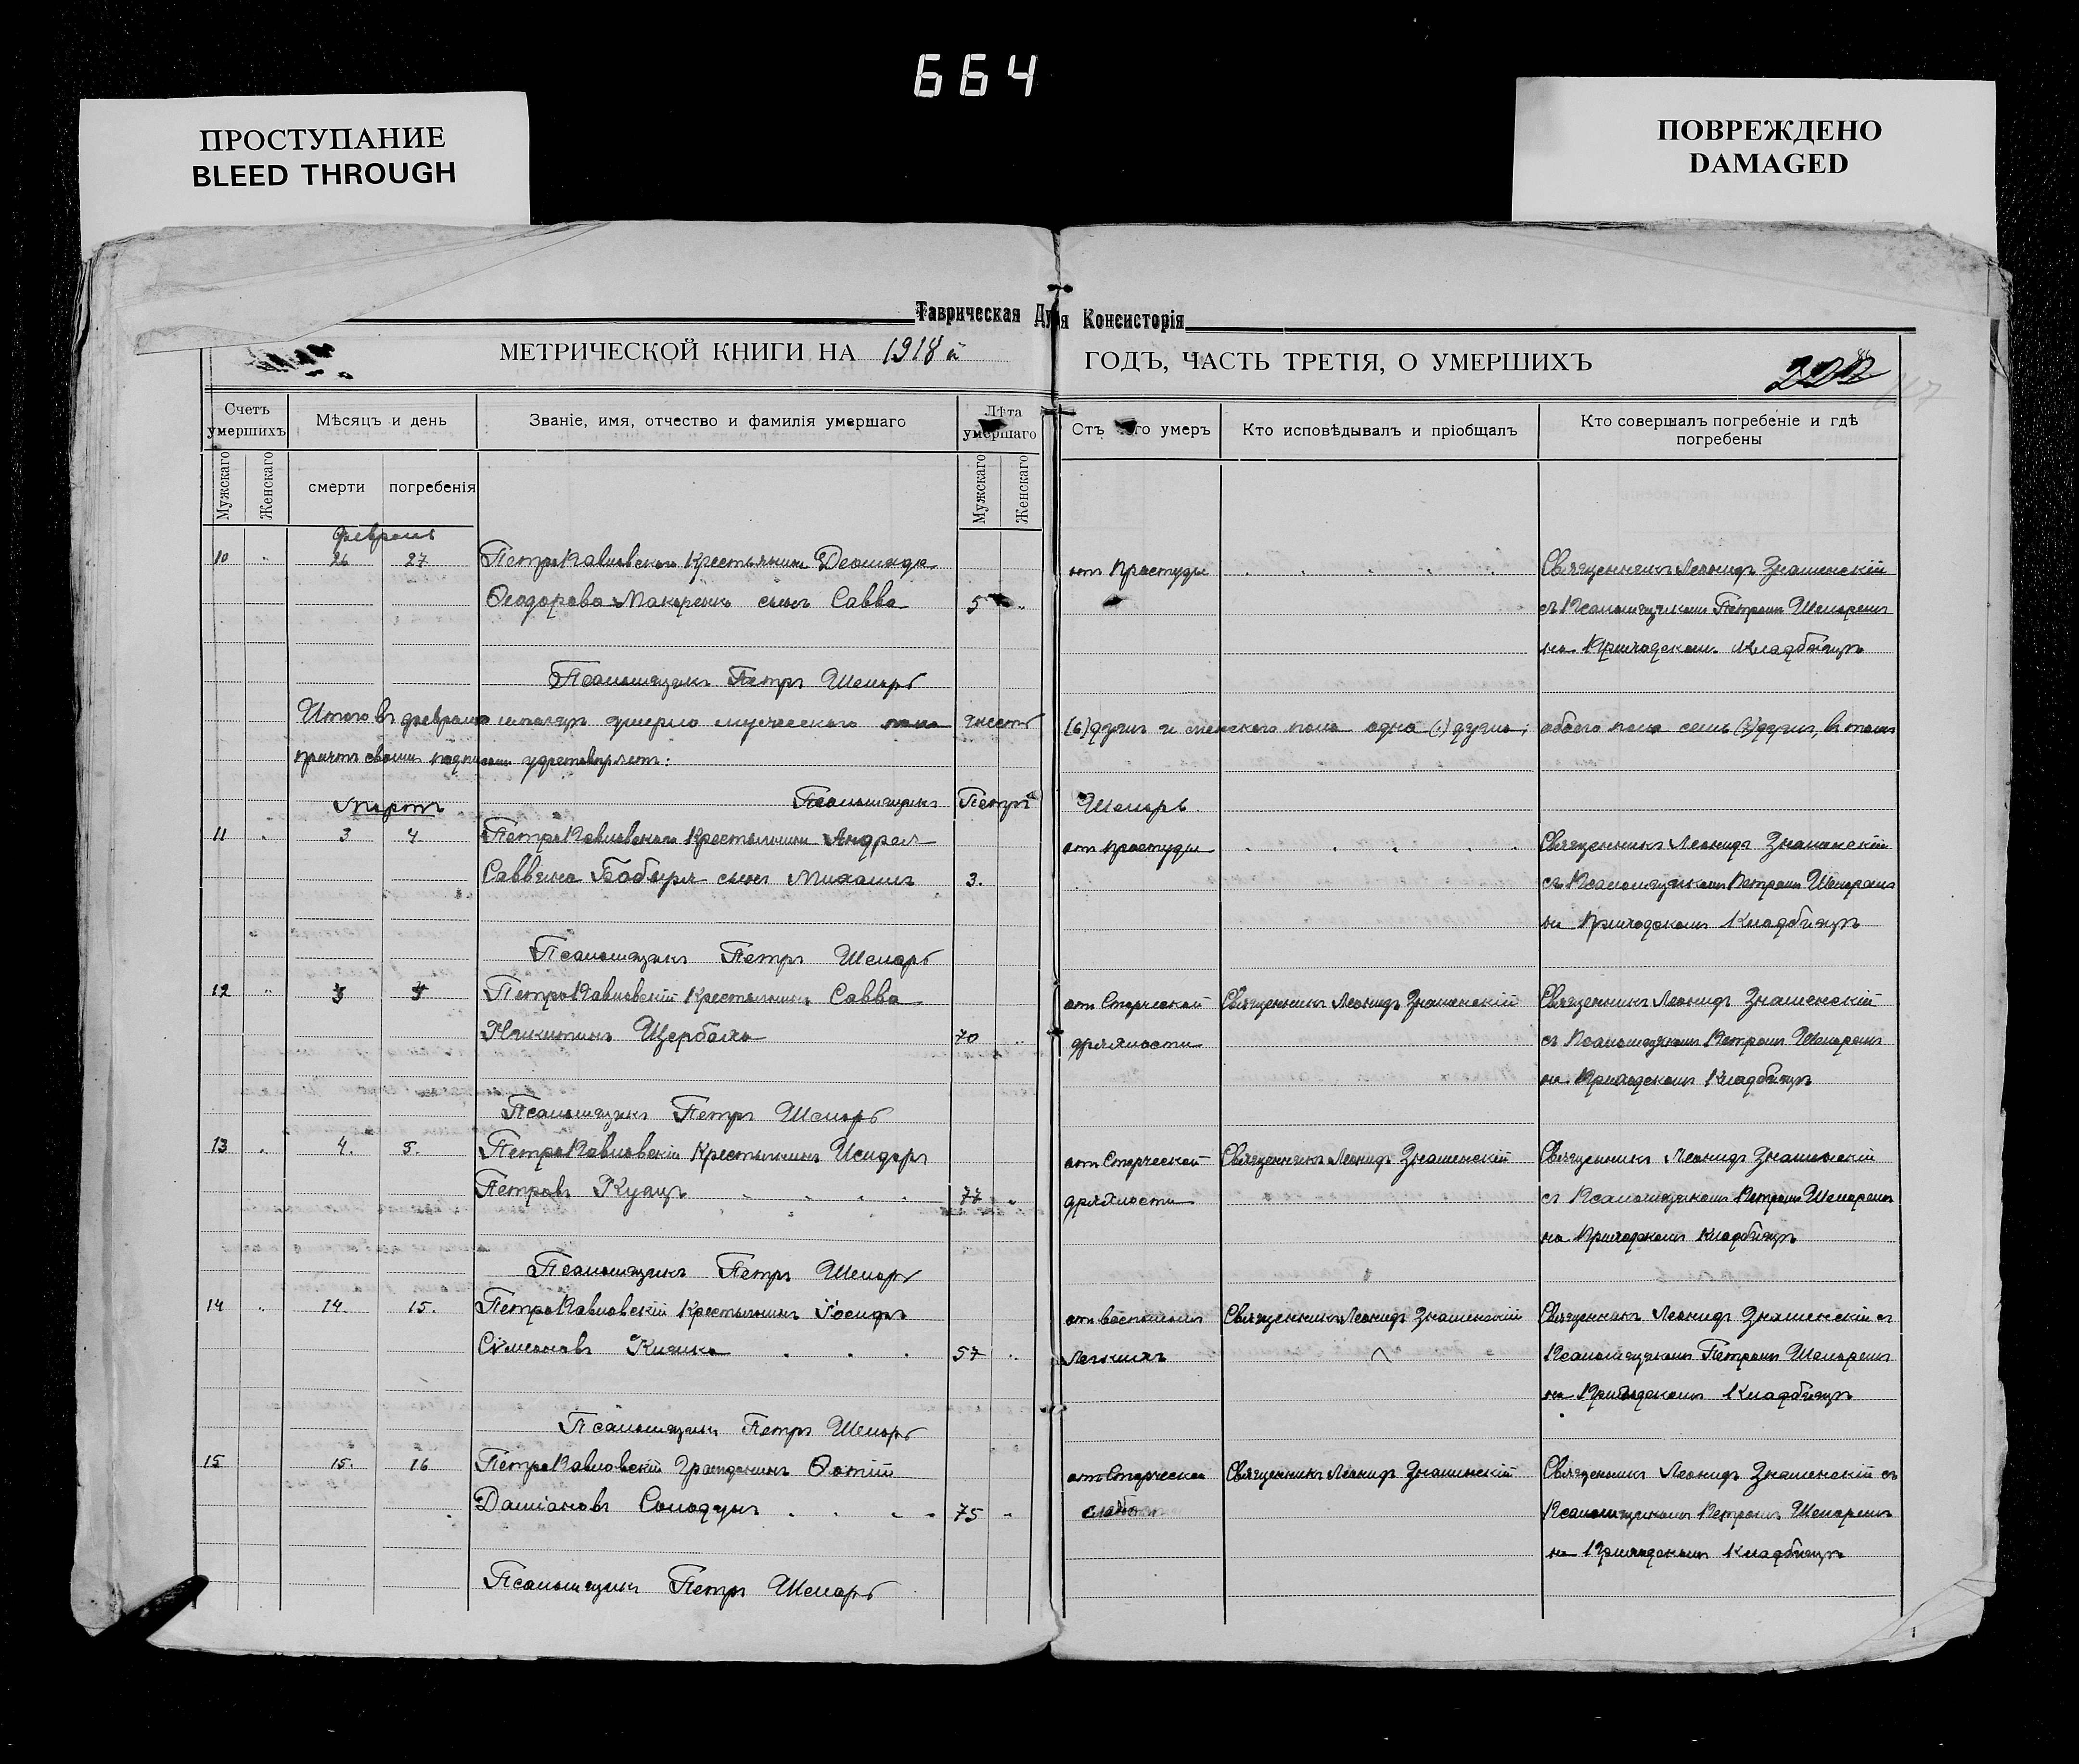 664
ПРОСТУПАНИЕ
BLEED THROUGH
ПОВРЕЖДЕНО
DAMAGED
Таврическая Ду я Консисторія
МЕТРИЧЕСКОЙ КНИГИ НА 1918 й ГОДЪ, ЧАСТЬ ТРЕТІЯ, О УМЕРШИХЪ
Счетъ умершихъ
Мѣсяцъ и день
Званіе, имя, отчество и фамилія умершаго
Лѣта умершаго
Отъ чего умеръ
Кто исповѣдывалъ и пріобщалъ
Кто совершалъ погребеніе и гдѣ погребены
Мужскаго
Женскаго
смерти
погребенія
Мужскаго
Женскаго
Февраль
10 26 27 ПетроПавловскаго Крестьянина от простуды Священникъ Леонидъ Знаменскій
Ѳеодорова Макаренко сынъ Савва 5 съ Псаломщикомъ Петромъ Шепаремъ
на Приходскомъ Кладбищѣ
Псаломщикъ Петръ Шепарь
Итого въ февралѣ мѣсяцѣ умерло мужескаго пола шесть (6) душъ и женскаго пола одна (1) душа; обоего пола семь (7) душъ, въ томъ
причтъ своимъ подписомъ удостовѣряетъ:
Псаломщикъ Петръ Шепарь
Мартъ
11 3 4 ПетроПавловскаго Крестьянина Андрея от простуды Священникъ Леонидъ Знаменскій
Саввина Бабыря сынъ Михаилъ 3. съ Псаломщикомъ Петромъ Шепаремъ
на Приходскомъ Кладбищѣ
Псаломщикъ Петръ Шепарь
12 ПетроПавловскій Крестьянинъ Савва от Старческой Священникъ Леонидъ Знаменскій Священникъ Леонидъ Знаменскій
Никитинъ Щербаха 70 дряхлости съ Псаломщикомъ Петромъ Шепаремъ
на Приходскомъ Кладбищѣ
Псаломщикъ Петръ Шепарь
13 4. 5. ПетроПавловскій Крестьянинъ Исидоръ от Старческой Священникъ Леонидъ Знаменскій Священникъ Леонидъ Знаменскій
Петровъ Куацъ 77 дряхлости съ Псаломщикомъ Петромъ Шепаремъ
на Приходскомъ Кладбищѣ
Псаломщикъ Петръ Шепарь
14 14 15. ПетроПавловскій Крестьянинъ Іосифъ от воспаленія Священникъ Леонидъ Знаменскій Священникъ Леонидъ Знаменскій съ
Сѵмеоновъ Кигика 57 Легкихъ Псаломщикомъ Петромъ Шепаремъ
на Приходскомъ Кладбищѣ
Псаломщикъ Петръ Шепарь
15 15. 16 ПетроПавловскій Гражданинъ Ѳотій от Старческой Священникъ Леонидъ Знаменскій Священникъ Леонидъ Знаменскій съ
Даміановъ Солодунъ 75 Псаломщикомъ Петромъ Шепаремъ
на Приходскомъ Кладбищѣ
Псаломщикъ Петръ Шепарь